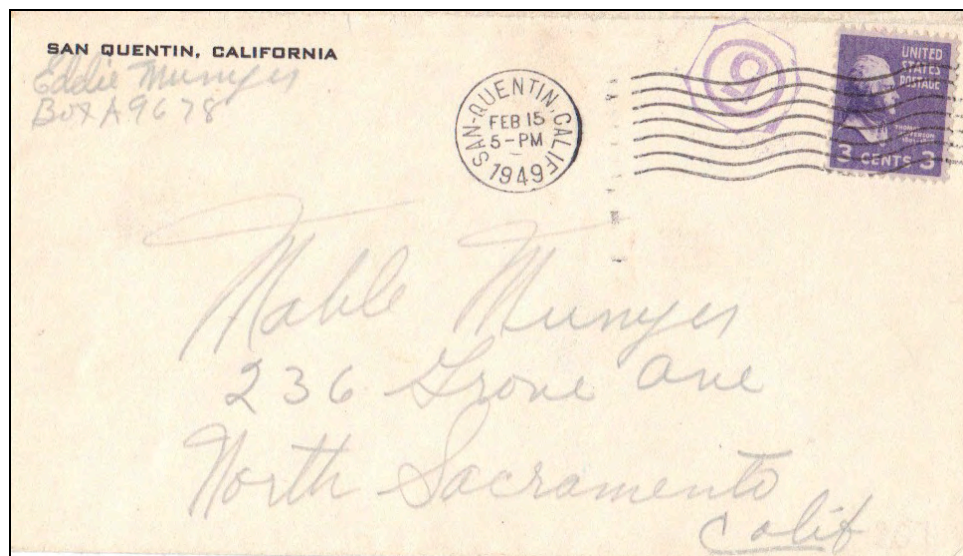 SAN QUENTIN, CALIFORNIA
Eddie Munyer
Box A9678
SAN-QUENTIN, CALIF
FEB 15
5-PM
1949
9
UNITED
STATES
POSTAGE
THOMAS
JEFFERSON
3 CENTS 3
Mable Munyer
236 Grove Ave
North Sacramento
Calif